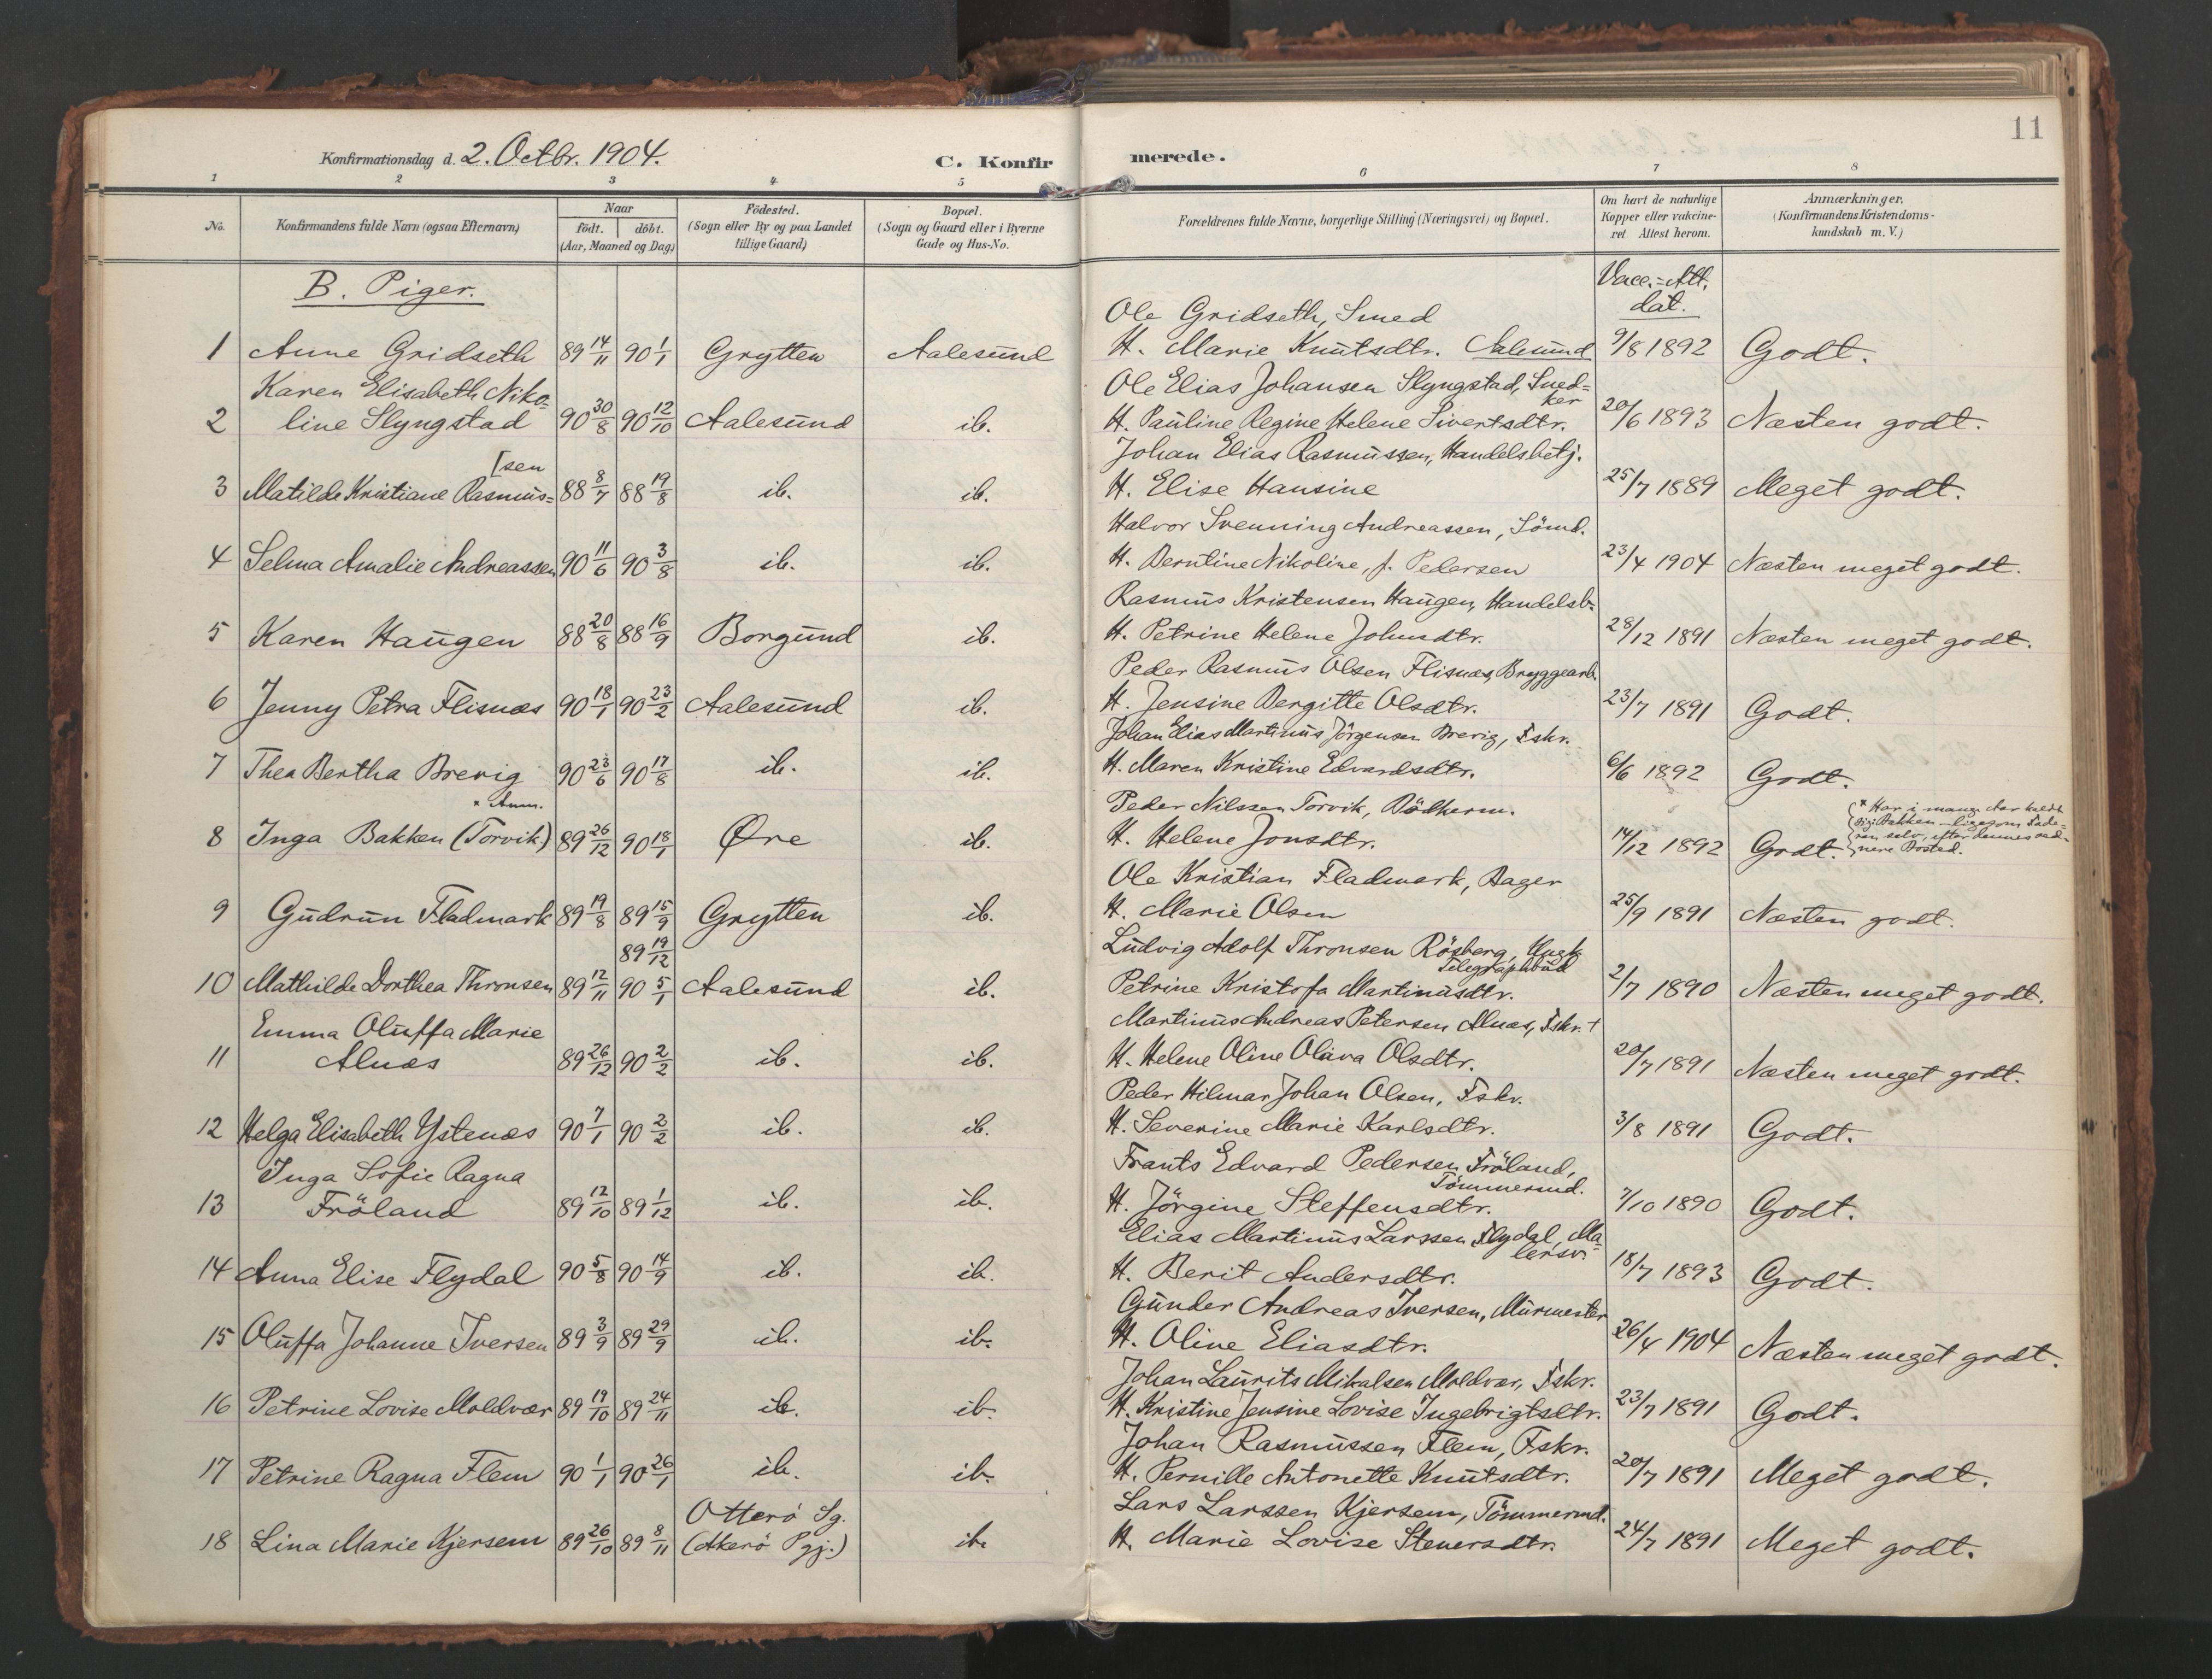 11
Konfirmationsdag d. 2. Octbr. 1904. C. Konfirmerede.
1 2 3 4 5 6 7 8
No. Konfirmandens fulde Navn (ogsaa Efternavn) Naar födt. döbt. (Aar, Maaned og Dag) Födested. (Sogn eller By og paa Landet tillige Gaard) Bopæl. (Sogn og Gaard eller i Byerne Gade og Hus-No. Forældrenes fulde Navne, borgerlige Stilling (Næringsvei) og Bopæl. Om havt de naturlige Kopper eller vakcineret Attest herom. Anmærkninger, (Konfirmandens Kristendomskundskab m. V.)
B. Piger. Vacc.=Att. dat.
Ole Gridseth, Smed
1 Anne Gridseth 89 14/11 90 1/1 Grytten Aalesund H. Marie Knutsdtr. Aalesund 9/8 1892 Godt.
Karen Elisabeth Niko- Ole Elias Johansen Slyngstad, Sned=ker
2 line Slyngstad 90 30/8 90 12/10 Aalesund ib. H. Pauline Regine Helene Sivertsdtr. 20/6 1893 Næsten godt.
[sen Johan Elias Rasmussen, Handelsbetj.
3 Matilde Kristiane Rasmus= 88 8/7 88 19/8 ib. ib. H. Elise Hansine 25/7 1889 Meget godt.
Halvor Svenning Andreassen, Sömd.
4 Selma Amalie Andreassen 90 11/6 90 3/8 ib. ib. H. Berntine Nikoline, f. Pedersen 23/4 1904 Næsten meget godt.
Rasmus Kristensen Haugen, Handelsb.
5 Karen Haugen 88 20/8 88 16/9 Borgund ib. H. Petrine Helene Johnsdtr. 28/12 1891 Næsten meget godt.
Peder Rasmus Olsen Flisnæs, Bryggearb.
6 Jenny Petra Flisnæs 90 18/1 90 23/2 Aalesund ib. H. Jensine Bergitte Olsdtr. 23/7 1891 Godt.
Johan Elias Martinus Jörgensen Brevig, Fskr.
7 Thea Bertha Brevig 90 23/6 90 17/8 ib. ib. H. Maren Kristine Edvardsdtr. 6/6 1892 Godt.
* Anm. Peder Nilssen Torvik, Bödkerm. * Har i mange Aar kaldt
sig Bakken – ligesom Fade=
8 Inga Bakken (Torvik) 89 26/12 90 18/1 Øre ib. H. Helene Jonsdtr. 14/12 1892 Godt. ren selv, efter dennes
nere Bosted.
Ole Kristian Fladmark, Bager
9 Gudrun Fladmark 89 19/8 89 15/9 Grytten ib. H. Marie Olsen 25/9 1891 Næsten godt.
89 19/12 Ludvig Adolf Thronsen Rösberg, Ungk. Telegraphbud
10 Mathilde Dorthea Thronsen 89 12/11 90 5/1 Aalesund ib. Petrine Kristofa Martinusdtr. 2/7 1890 Næsten meget godt.
Emma Oluffa Marie Martinus Andreas Petersen Alnæs, Fskr. +
11 Alnæs 89 26/12 90 2/2 ib. ib. H. Helene Oline Olava Olsdtr. 20/7 1891 Næsten meget godt.
Peder Hilmar Johan Olsen, Fskr.
12 Helga Elisabeth Ystenæs 90 7/1 90 2/2 ib. ib. H. Severine Marie Karlsdtr. 3/8 1891 Godt.
Inga Sofie Ragna Frants Edvard Pedersen Fröland, Tömmermd.
13 Fröland 89 12/10 89 1/12 ib. ib. H. Jörgine Steffensdtr. 7/10 1890 Godt.
Elias Martinus Larssen Flydal, Ma=lersv.
14 Anna Elise Flydal 90 5/8 90 14/9 ib. ib. H. Berit Andersdtr. 18/7 1893 Godt.
Gunder Andreas Iversen, Murmester
15 Oluffa Johanne Iversen 89 3/9 89 29/9 ib. ib. H. Oline Eliasdtr. 26/4 1904 Næsten meget godt.
Johan Laurits Mikalsen Moldvær, Fskr.
16 Petrine Lovise Moldvær 89 19/10 89 24/11 ib. ib. H. Kristine Jensine Lovise Ingebrigtsdtr. 23/7 1891 Godt.
Johan Rasmussen Flem, Fskr.
17 Petrine Ragna Flem 90 1/1 90 26/1 ib. ib. H. Pernille Antonette Knutsdtr. 20/7 1891 Meget godt.
Otterö Sg. Lars Larssen Kjersem, Tömmermd.
18 Lina Marie Kjersem 89 26/10 89 8/11 (Akerö Pgj.) ib. H. Marie Lovise Stenersdtr. 24/7 1891 Meget godt.